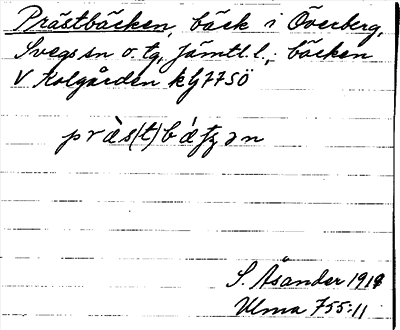 Prästbäcken, bäck i Överberg,
Svegs sn o. tg, Jämtl. l.; bäcken
V Kolgården kfj 7750
præ̀s(t)bǽtʒən
S. Åsander 1918
Ulma 755:11